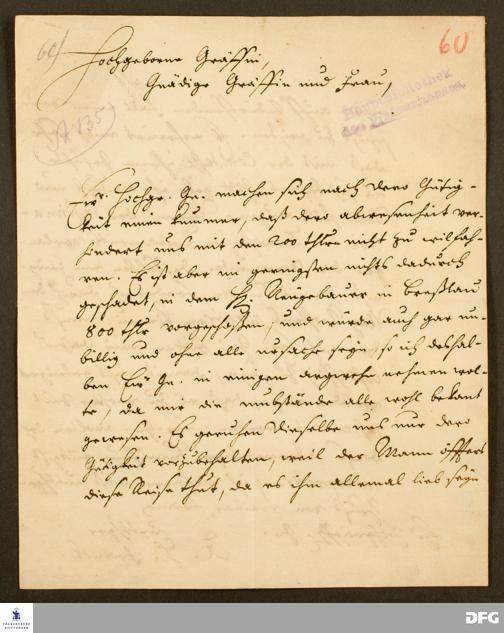 60
60
Hochgeborne Gräffin,
Gnädige Gräffin und Frau,
A 135
Hauptbibliothek
des Waisenhauses
Ew. Hochgr. Gn. machen sich nach dero Gütig-
keit einen kummer, daß dero abwesenheit ver-
hindert uns mit den 200 thlrn nicht zu willfah-
ren. Es ist aber im geringsten nichts dadurch
geschadet, in dem H. Neugebauer in Breßlau
800 thlr vorgeschoßen, und würde auch gar un-
billig und ohne alle ursache seyn, so ich deshal-
ben Ew Gn. in einigen argwohn nehmen wol-
te, da mir die umbstände alle wohl bekant
gewesen. Es geruhen dieselbe uns nur dero
Gütigkeit vorzubehalten, weil der Mann öffters
diese Reise thut, da es ihm allemal lieb seyn
FRANCKESCHE
STIFTUNGEN
DFG